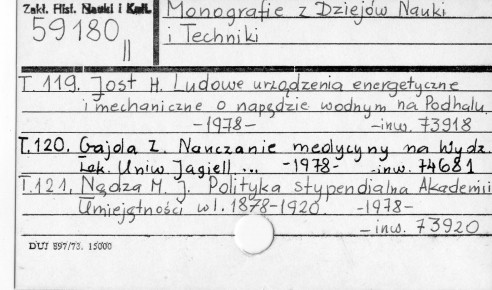 Zakł. Hist. Nauki i Kult.
Monografie z Dziejów Nauki
59180
i Techniki
II
T. 119. Jost H. Ludowe urządzenia energetyczne
i mechaniczne o napędzie wodnym na Podhalu.
-1978- -inw. 73918
T.120. Gajda Z. Nanczanie medycyny na Wydz.
Lek. Uniw. Jagiell... -1978- -inw. 74681
T.121. Nędza M. J. Polityka stypendialna Akademii
Umiejętności w l. 1878-1920. -1978-
-inw. 73920
DUJ 897/73. 15000